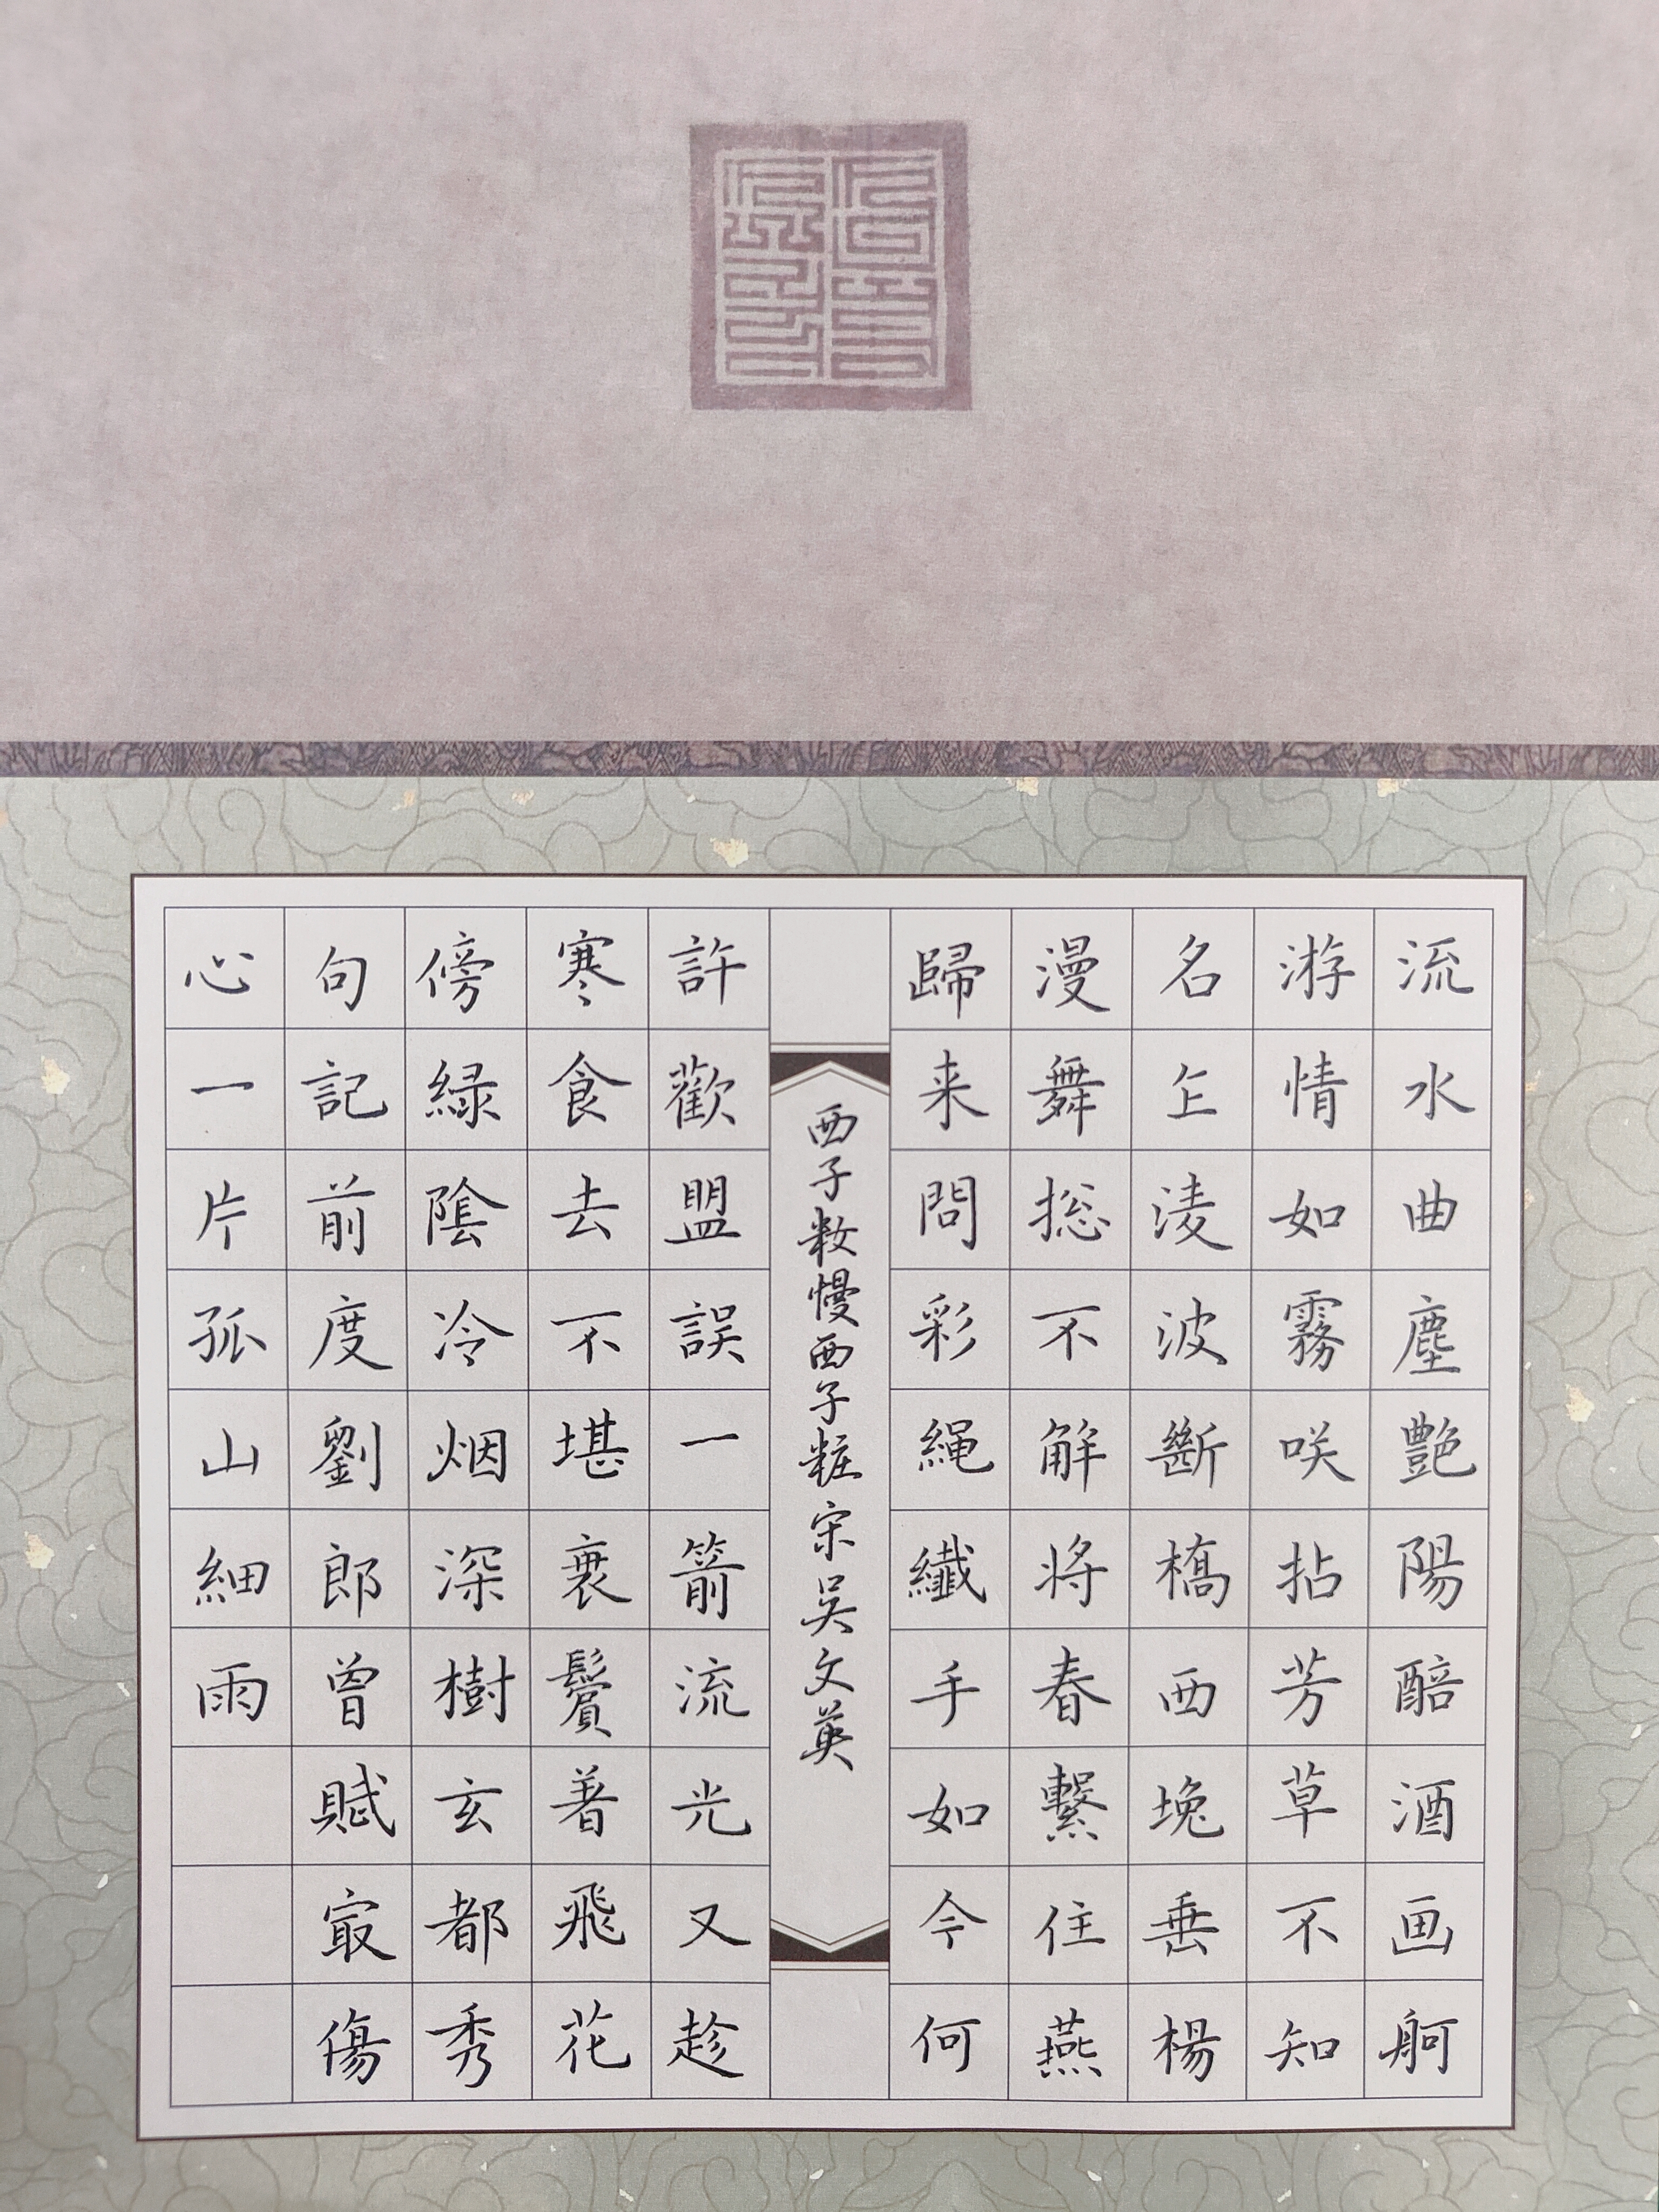 流水曲塵艶陽醅酒画舸
游情如霧咲拈芳草不知
名上淩波斷橋西堍垂楊
漫舞捴不解将春繫住燕
歸来問彩繩纖手如今何
西子妝慢西子粧宋吴文英
許歡盟誤一箭流光又趁
寒食去不堪衰鬢着飛花
傍緑陰冷烟深樹玄都秀
句記前度劉郎曾賦最傷
心一片孤山細雨